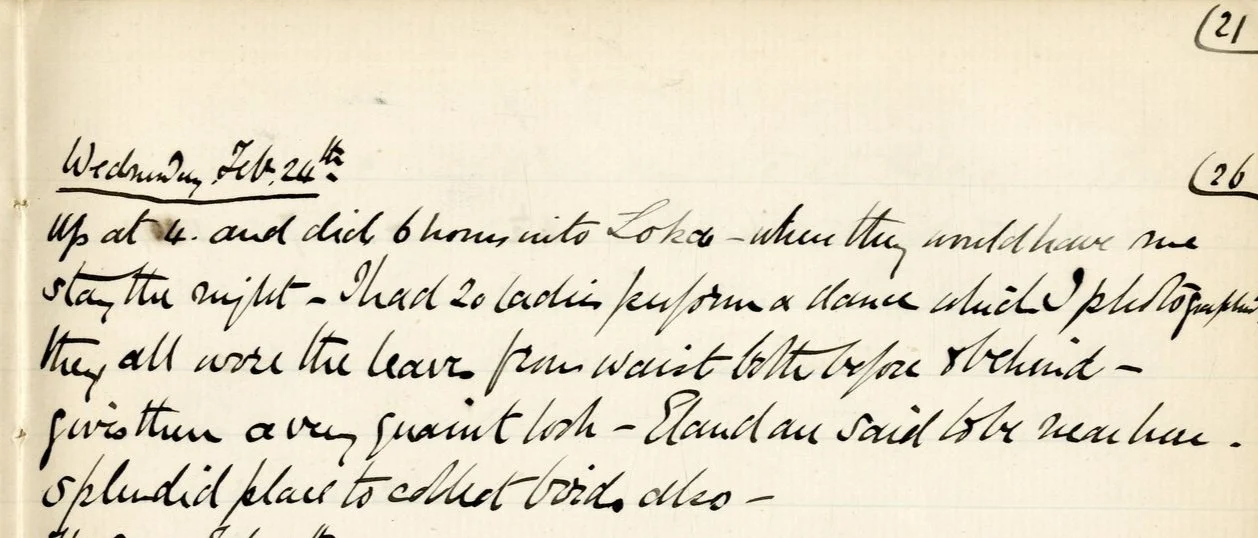 (21
Wednesday Feb. 24th
(26
Up at 4. and did 6 hours into Loka - where they would have me
stay the night - I had 20 ladies perform a dance which I photographed
they all wore the leaves from waist both before & behind -
gives them a very quaint look - Eland are said to be near here.
splendid place to collect birds also -